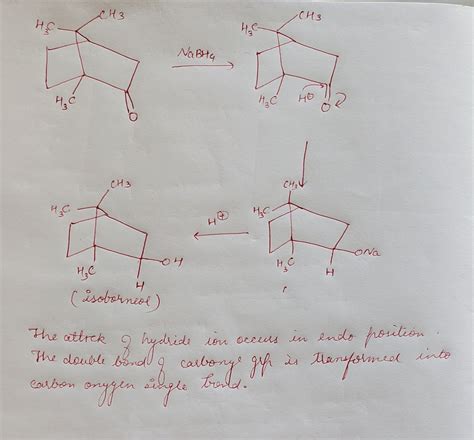 CH3 CH3
H3C NaBH4 H3C
H3C H3C H⊖
O O
CH3 CH3
H3C H⊕ H3C
OH ONa
H3C H H3C H
(isoborneol)
The attrck of hydride ion occurs in endo position.
The double bond of carbonyl grp is transformed into
carbon onygen single bond.